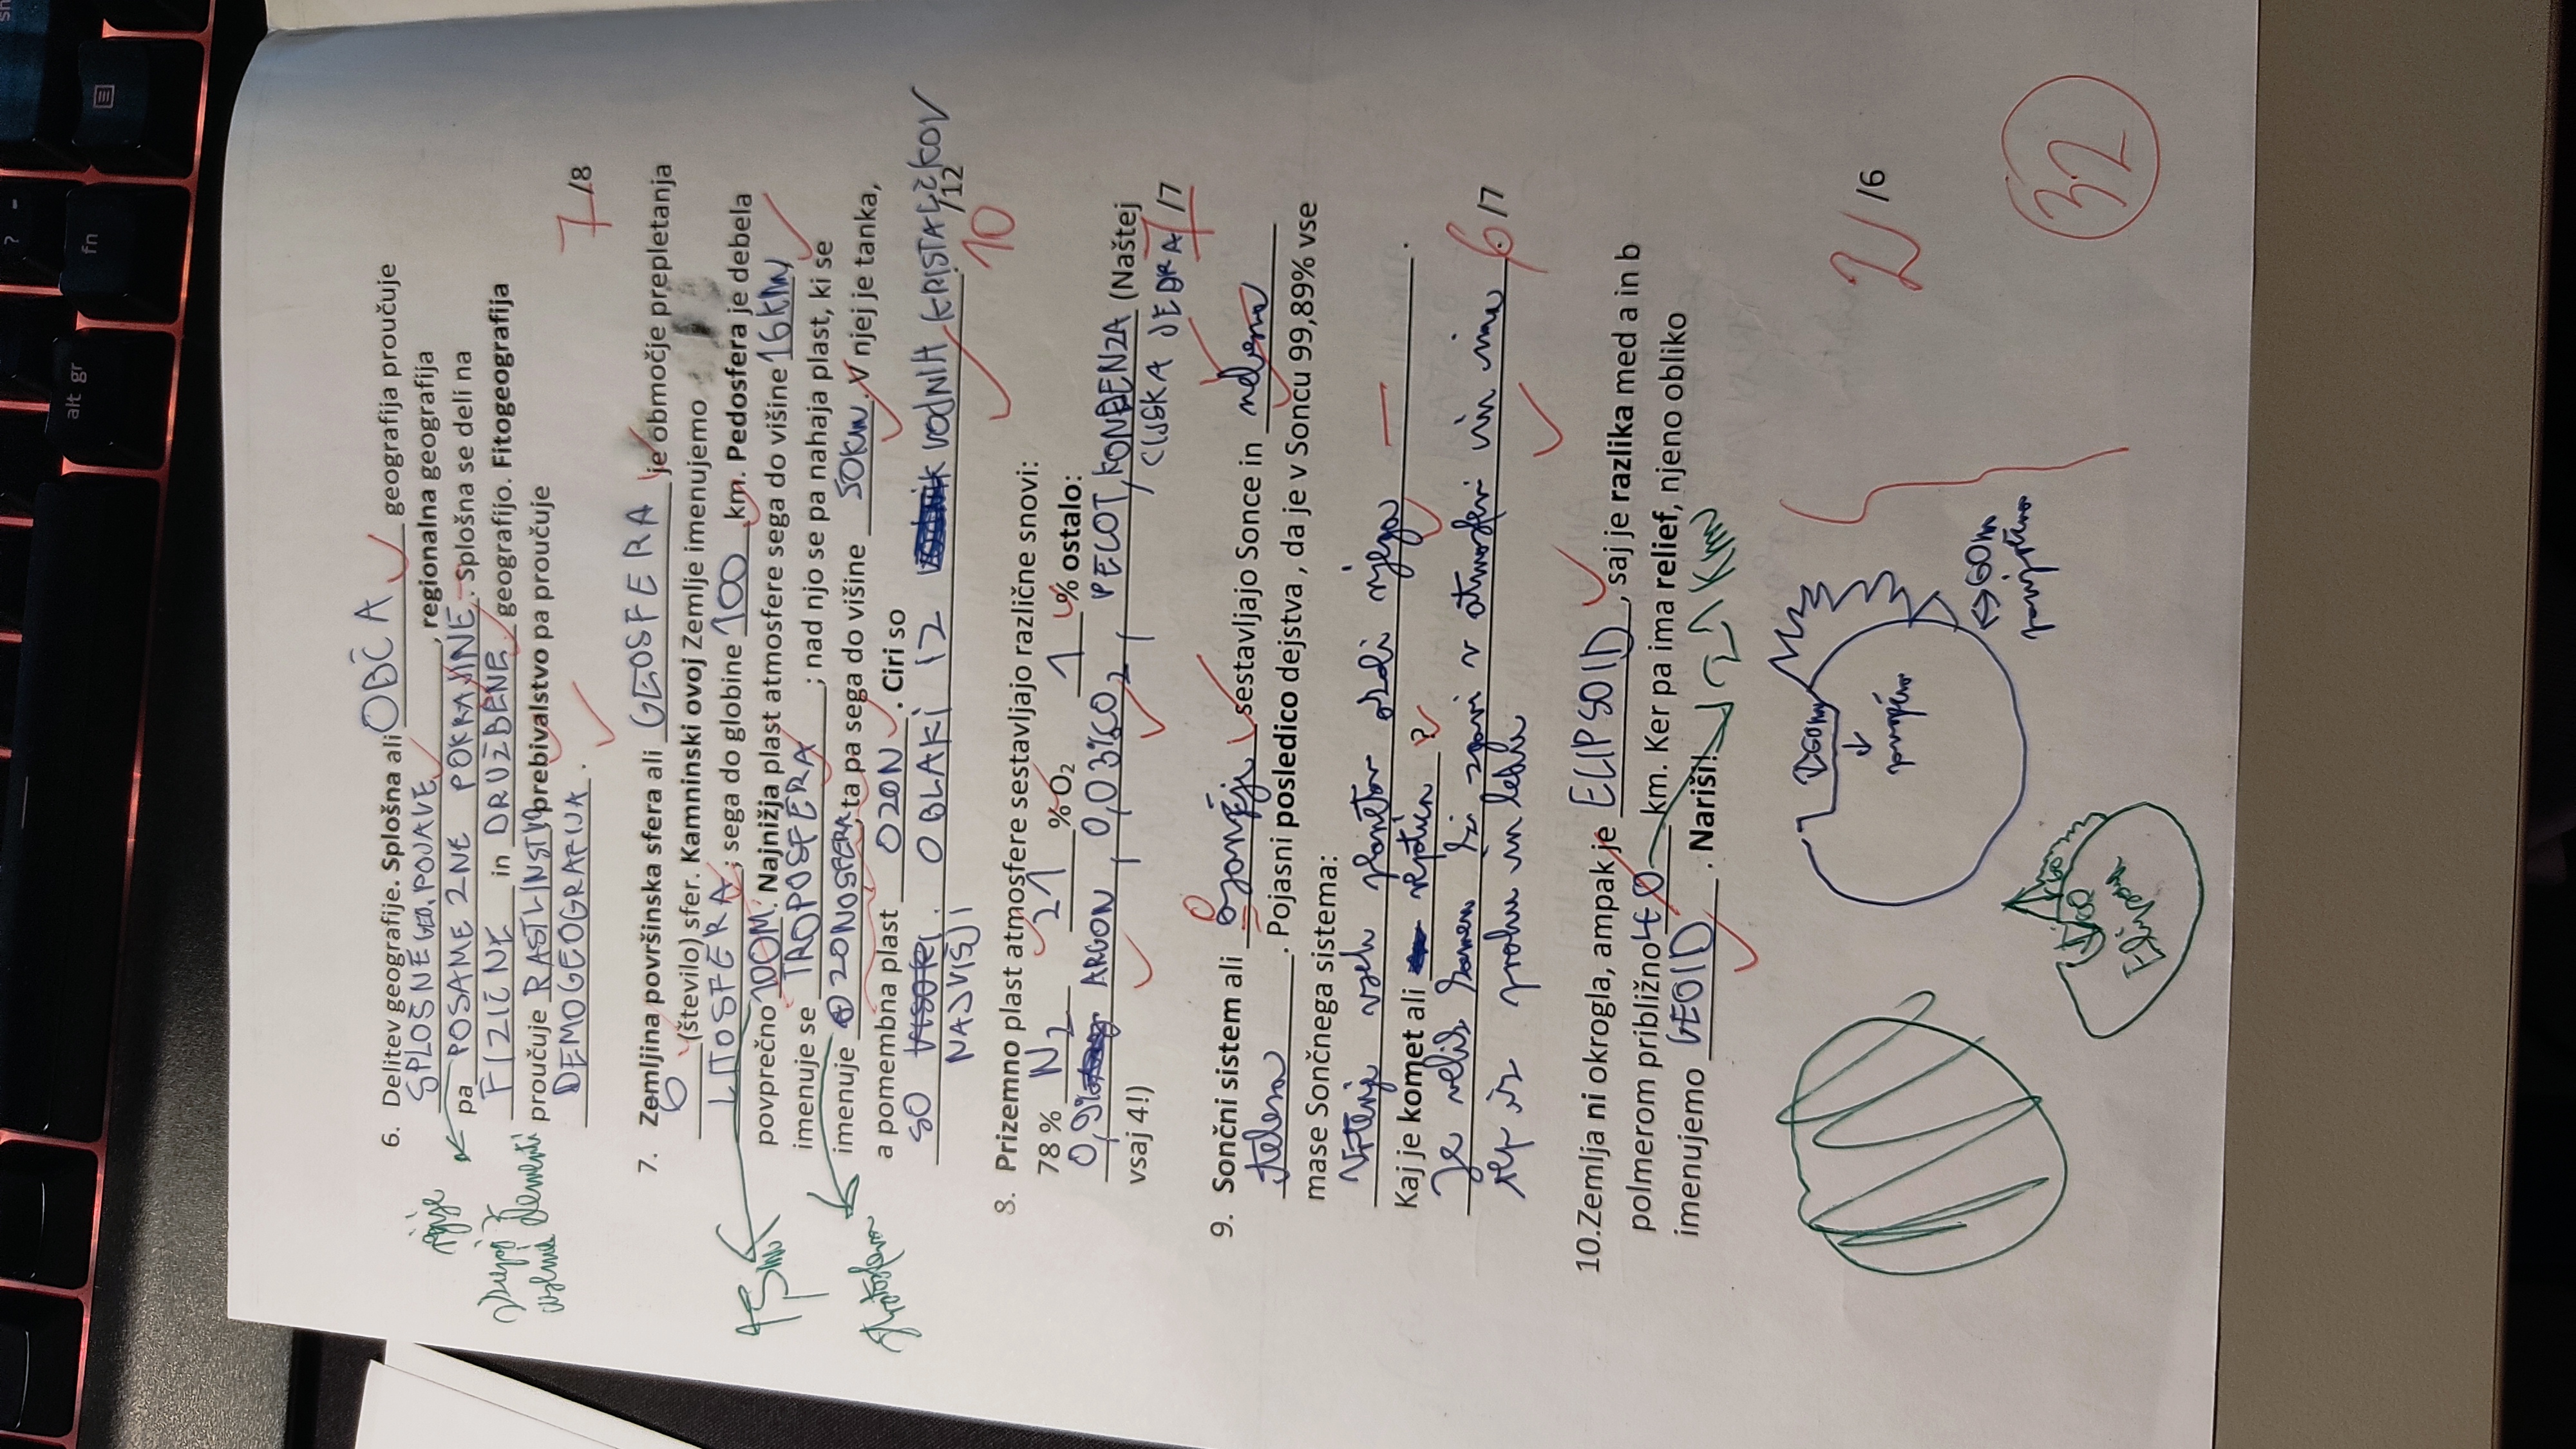 ? -
alt gr
fn
6. Delitev geografije. Splošna ali OBČA geografija proučuje
SPLOŠNE GEO. POJAVE, regionalna geografija
regije
pa POSAMEZNE POKRAJINE. Splošna se deli na
FIZIČNE in DRUŽBENE geografijo. Fitogeografija
elementi
proučuje RASTLINSTVO, prebivalstvo pa proučuje
DEMOGEOGRAFIJA.
7/8
7. Zemljina površinska sfera ali GEOSFERA je območje prepletanja
6 (število) sfer. Kamninski ovoj Zemlje imenujemo
LITOSFERA; sega do globine 100 km. Pedosfera je debela
povprečno 100M. Najnižja plast atmosfere sega do višine 16KM
imenuje se TROPOSFERA; nad njo se pa nahaja plast, ki se
imenuje OZONOSFERA, ta pa sega do višine 50km. V njej je tanka,
stratosfera
a pomembna plast OZON. Ciri so
SO NAJVIŠJI OBLAKI IZ VODNIH KRISTALČKOV
10/12
8. Prizemno plast atmosfere sestavljajo različne snovi:
78 % N2 21 % O2 1 % ostalo:
0,9% ARGON, 0,03%CO2, PELOT, KONDENZA (Naštej
vsaj 4!) CIJSKA JEDRA 7/7
9. Sončni sistem ali Osončje sestavljajo Sonce in nebesna
telesa. Pojasni posledico dejstva , da je v Soncu 99,89% vse
mase Sončnega sistema:
Vrtenje vseh planetov okoli njega.
Kaj je komet ali repatica ?
Je velik kamen ki zgori v atmosferi in ima 6/7
rep iz prahu in ledu
10.Zemlja ni okrogla, ampak je ELIPSOID, saj je razlika med a in b
polmerom približno 40 km. Ker pa ima relief, njeno obliko
imenujemo GEOID. Nariši! 21 Km
60m
povprečno
2/6
60m
povprečno
60
60
32